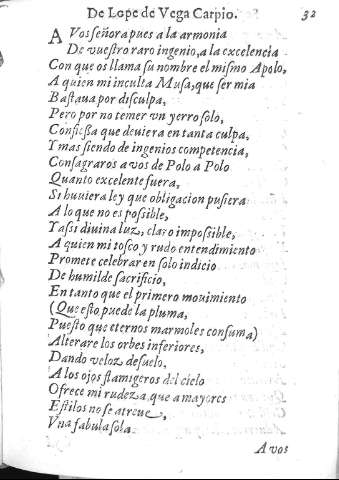 De Lope de Vega Carpio. 32
A Vos señora pues a la armonia
De vuestro raro ingenio, a la excelencia
Con que os llama su nombre el mismo Apolo,
A quien mi inculta Musa, que ser mia
Bastaua por disculpa,
Pero por no temer vn yerro solo,
Confiessa que deuiera en tanta culpa,
Y mas siendo de ingenios competencia,
Consagraros a vos de Polo a Polo
Quanto excelente fuera,
Si huuiera ley que obligacion pusiera
A lo que no es possible,
Y assi diuina luz, claro impossible,
A quien mi tosco y rudo entendimiento
Promete celebrar en solo indicio
De humilde sacrificio,
En tanto que el primero mouimiento
(Que esto puede la pluma,
Puesto que eternos marmoles consuma)
Alterare los orbes inferiores,
Dando veloz desuelo,
A los ojos flamigeros del cielo
Ofrece mi rudeza, que a mayores
Estilos no se atreue,
Vna fabula sola
A vos